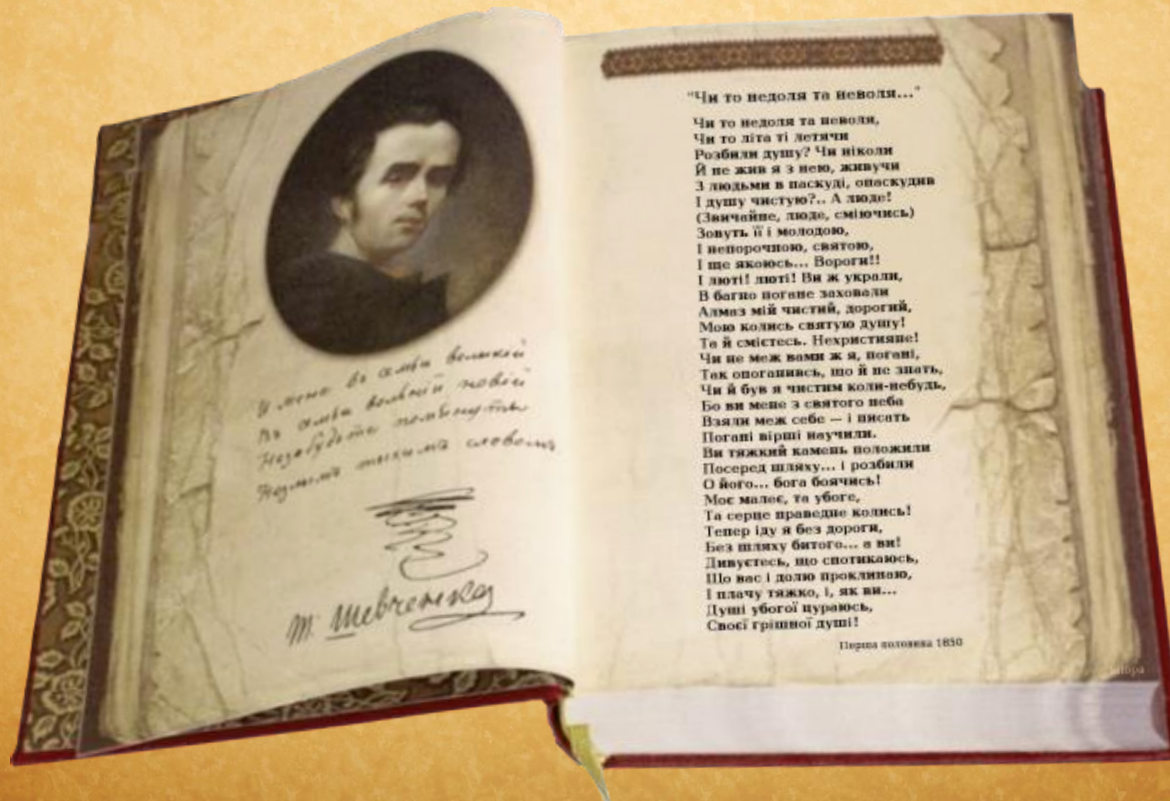 И мене въ семьи великій
Въ семьи вольній новій
Незабудьте помьянуты
Незлымъ тихимъ словомъ
Т. Шевченко
"Чи то недоля та неволя..."
Чи то недоля та неволя,
Чи то літа ті летячи
Розбили душу? Чи ніколи
Й не жив я з нею, живучи
З людьми в паскуді, опаскудив
І душу чистую?.. А люде!
(Звичайне, люде, сміючись)
Зовуть її і молодою,
І непорочною, святою,
І ще якоюсь... Вороги!!
І люті! люті! Ви ж украли,
В багно погане заховали
Алмаз мій чистий, дорогий,
Мою колись святую душу!
Та й смієтесь. Нехристияне!
Чи не меж вами ж я, погані,
Так опоганивсь, що й не знать,
Чи й був я чистим коли-небудь,
Бо ви мене з святого неба
Взяли меж себе — і писать
Погані вірші научили.
Ви тяжкий камень положили
Посеред шляху... і розбили
О його... бога боячись!
Моє малеє, та убоге,
Та серце праведне колись!
Тепер іду я без дороги,
Без шляху битого... а ви!
Дивуєтесь, що спотикаюсь,
Що вас і долю проклинаю,
І плачу тяжко, і, як ви...
Душі убогої цураюсь,
Своєї грішної душі!
Перша половина 1850